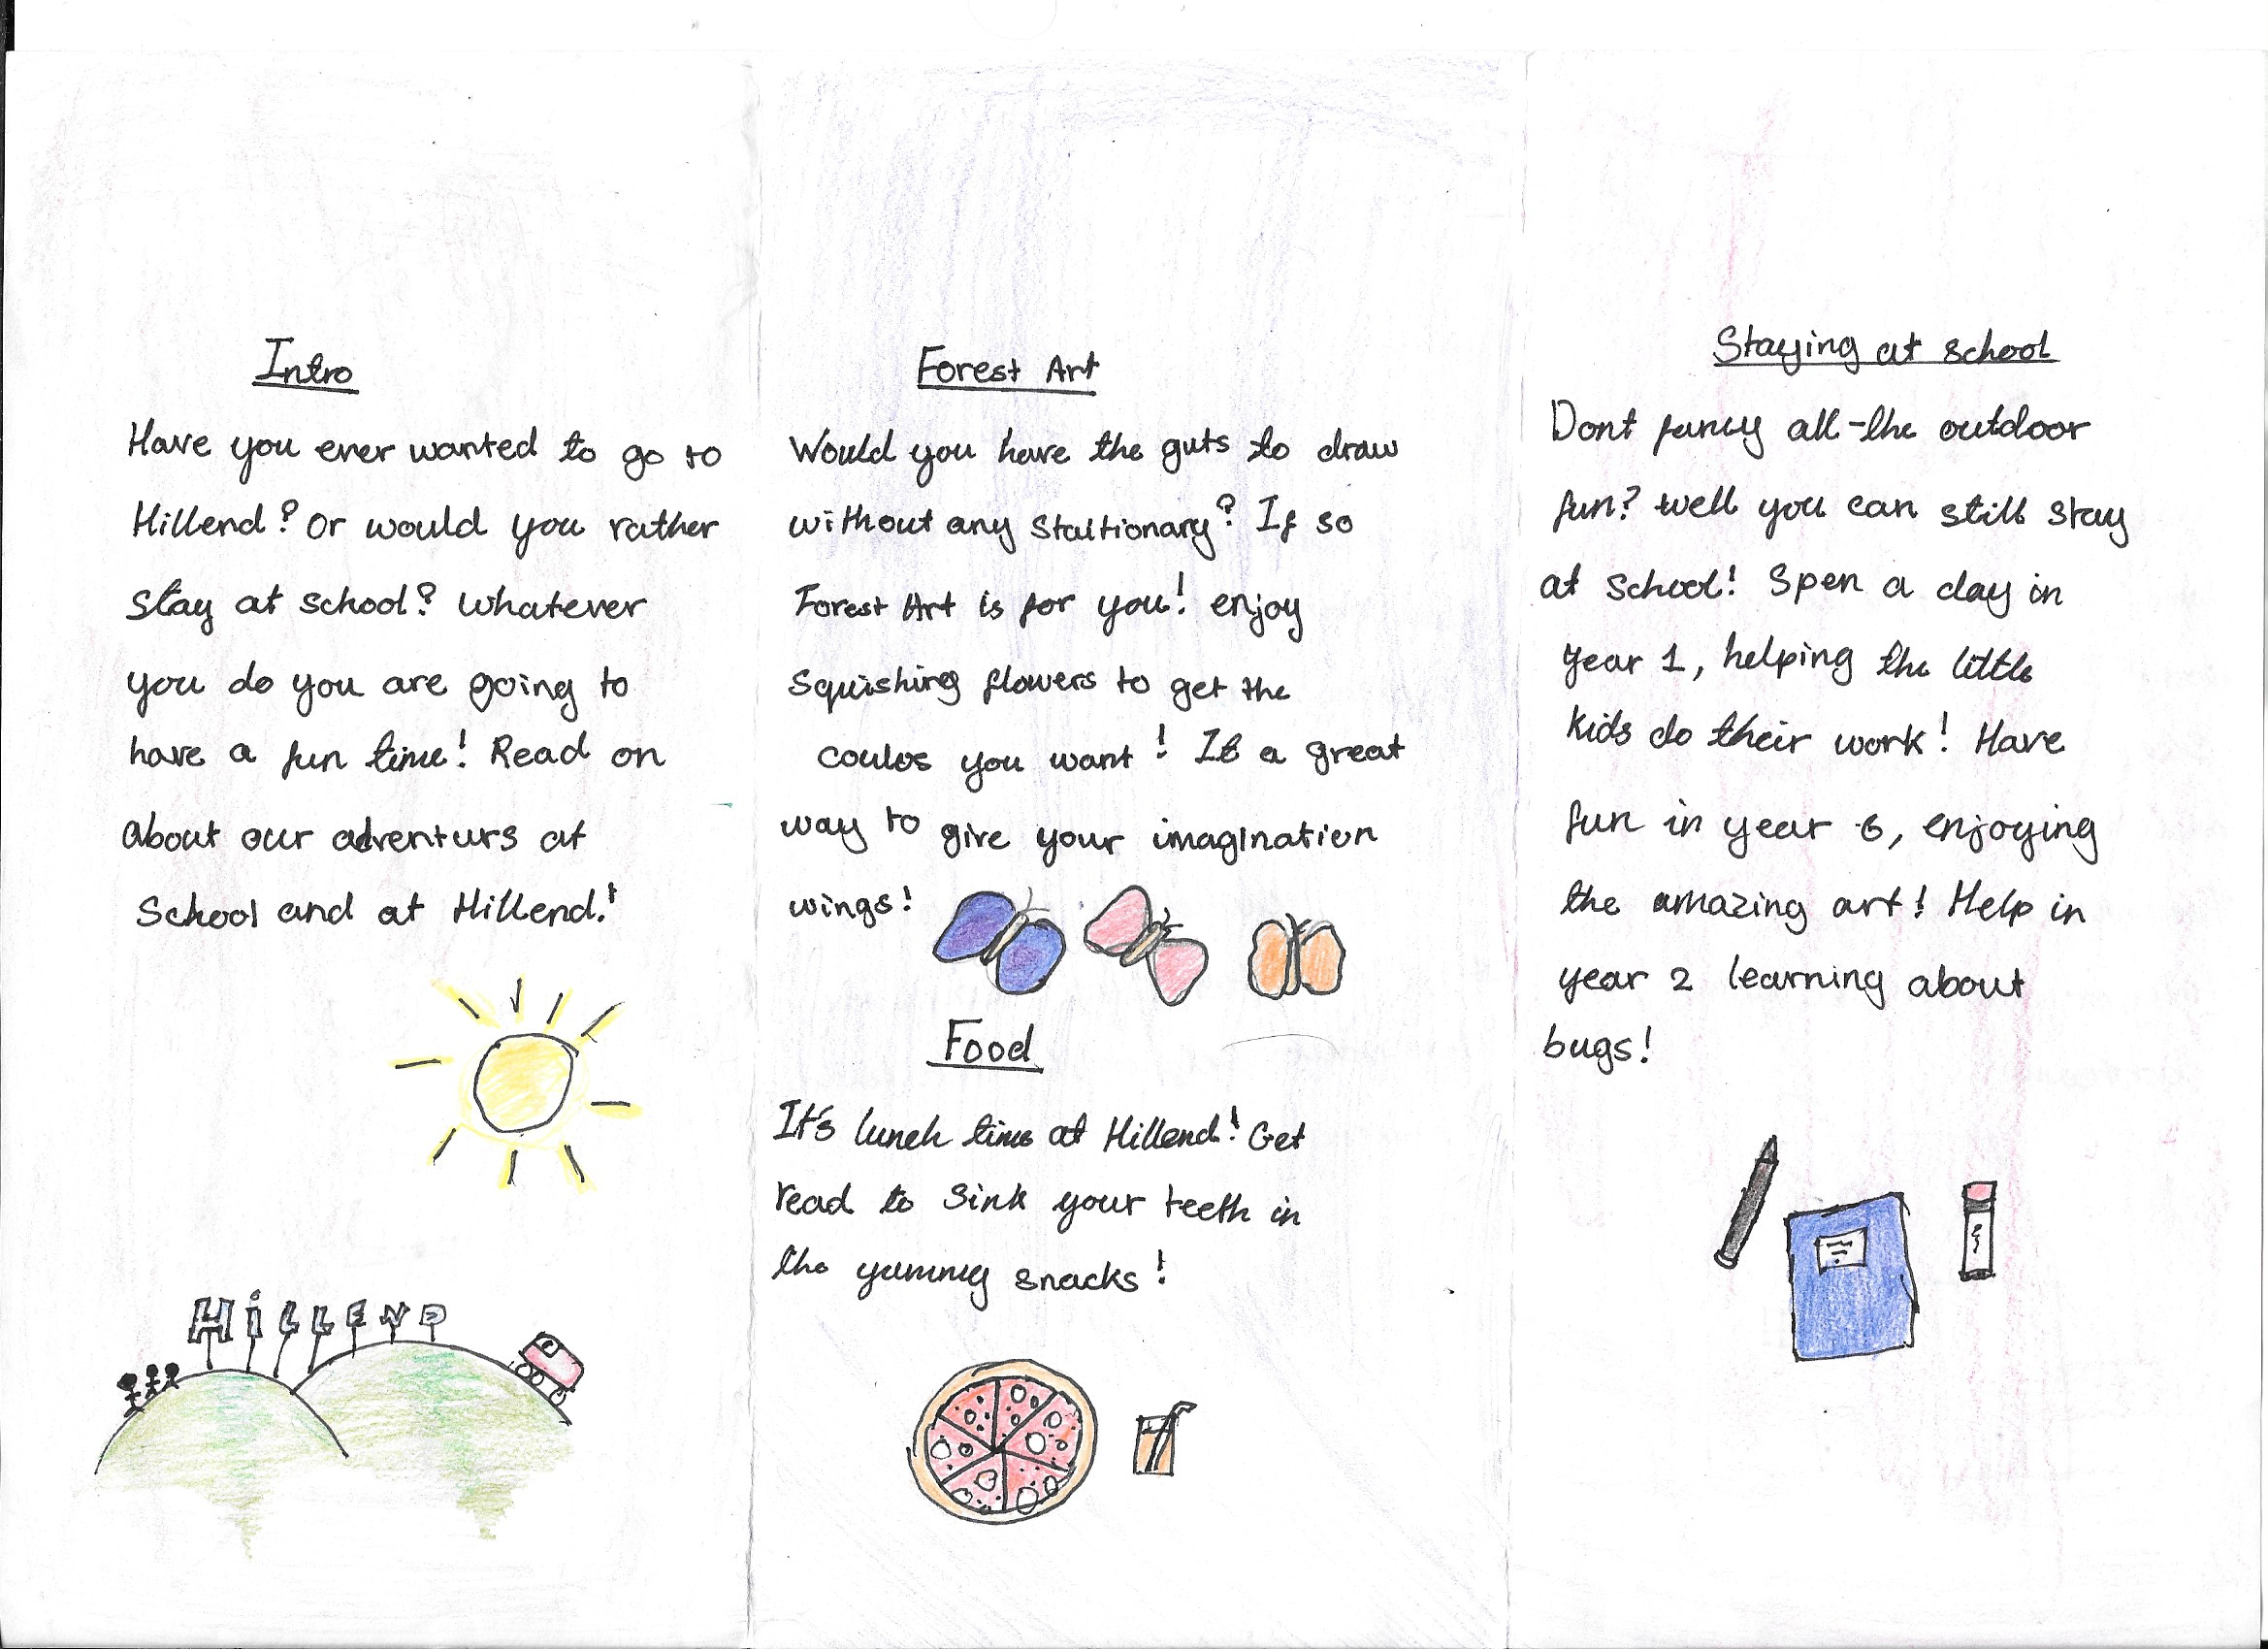 Intro
Have you ever wanted to go to
Hillend? Or would you rather
stay at school? Whatever
you do you are going to
have a fun time! Read on
about our adventurs at
School and at Hillend!
HiLLEND
Forest Art
Would you have the guts to draw
without any Staitionary? If so
Forest Art is for you! enjoy
squishing flowers to get the
coulos you want! It a great
way to give your imagination
wings!
Food
It's lunch time at Hillend! Get
read to sink your teeth in
the yummy snacks!
Staying at school
Dont fancy all the outdoor
fun? well you can still stay
at school! Spen a day in
year 1, helping the little
kids do their work! Have
fun in year 6, enjoying
the amazing art! Help in
year 2 learning about
bugs!